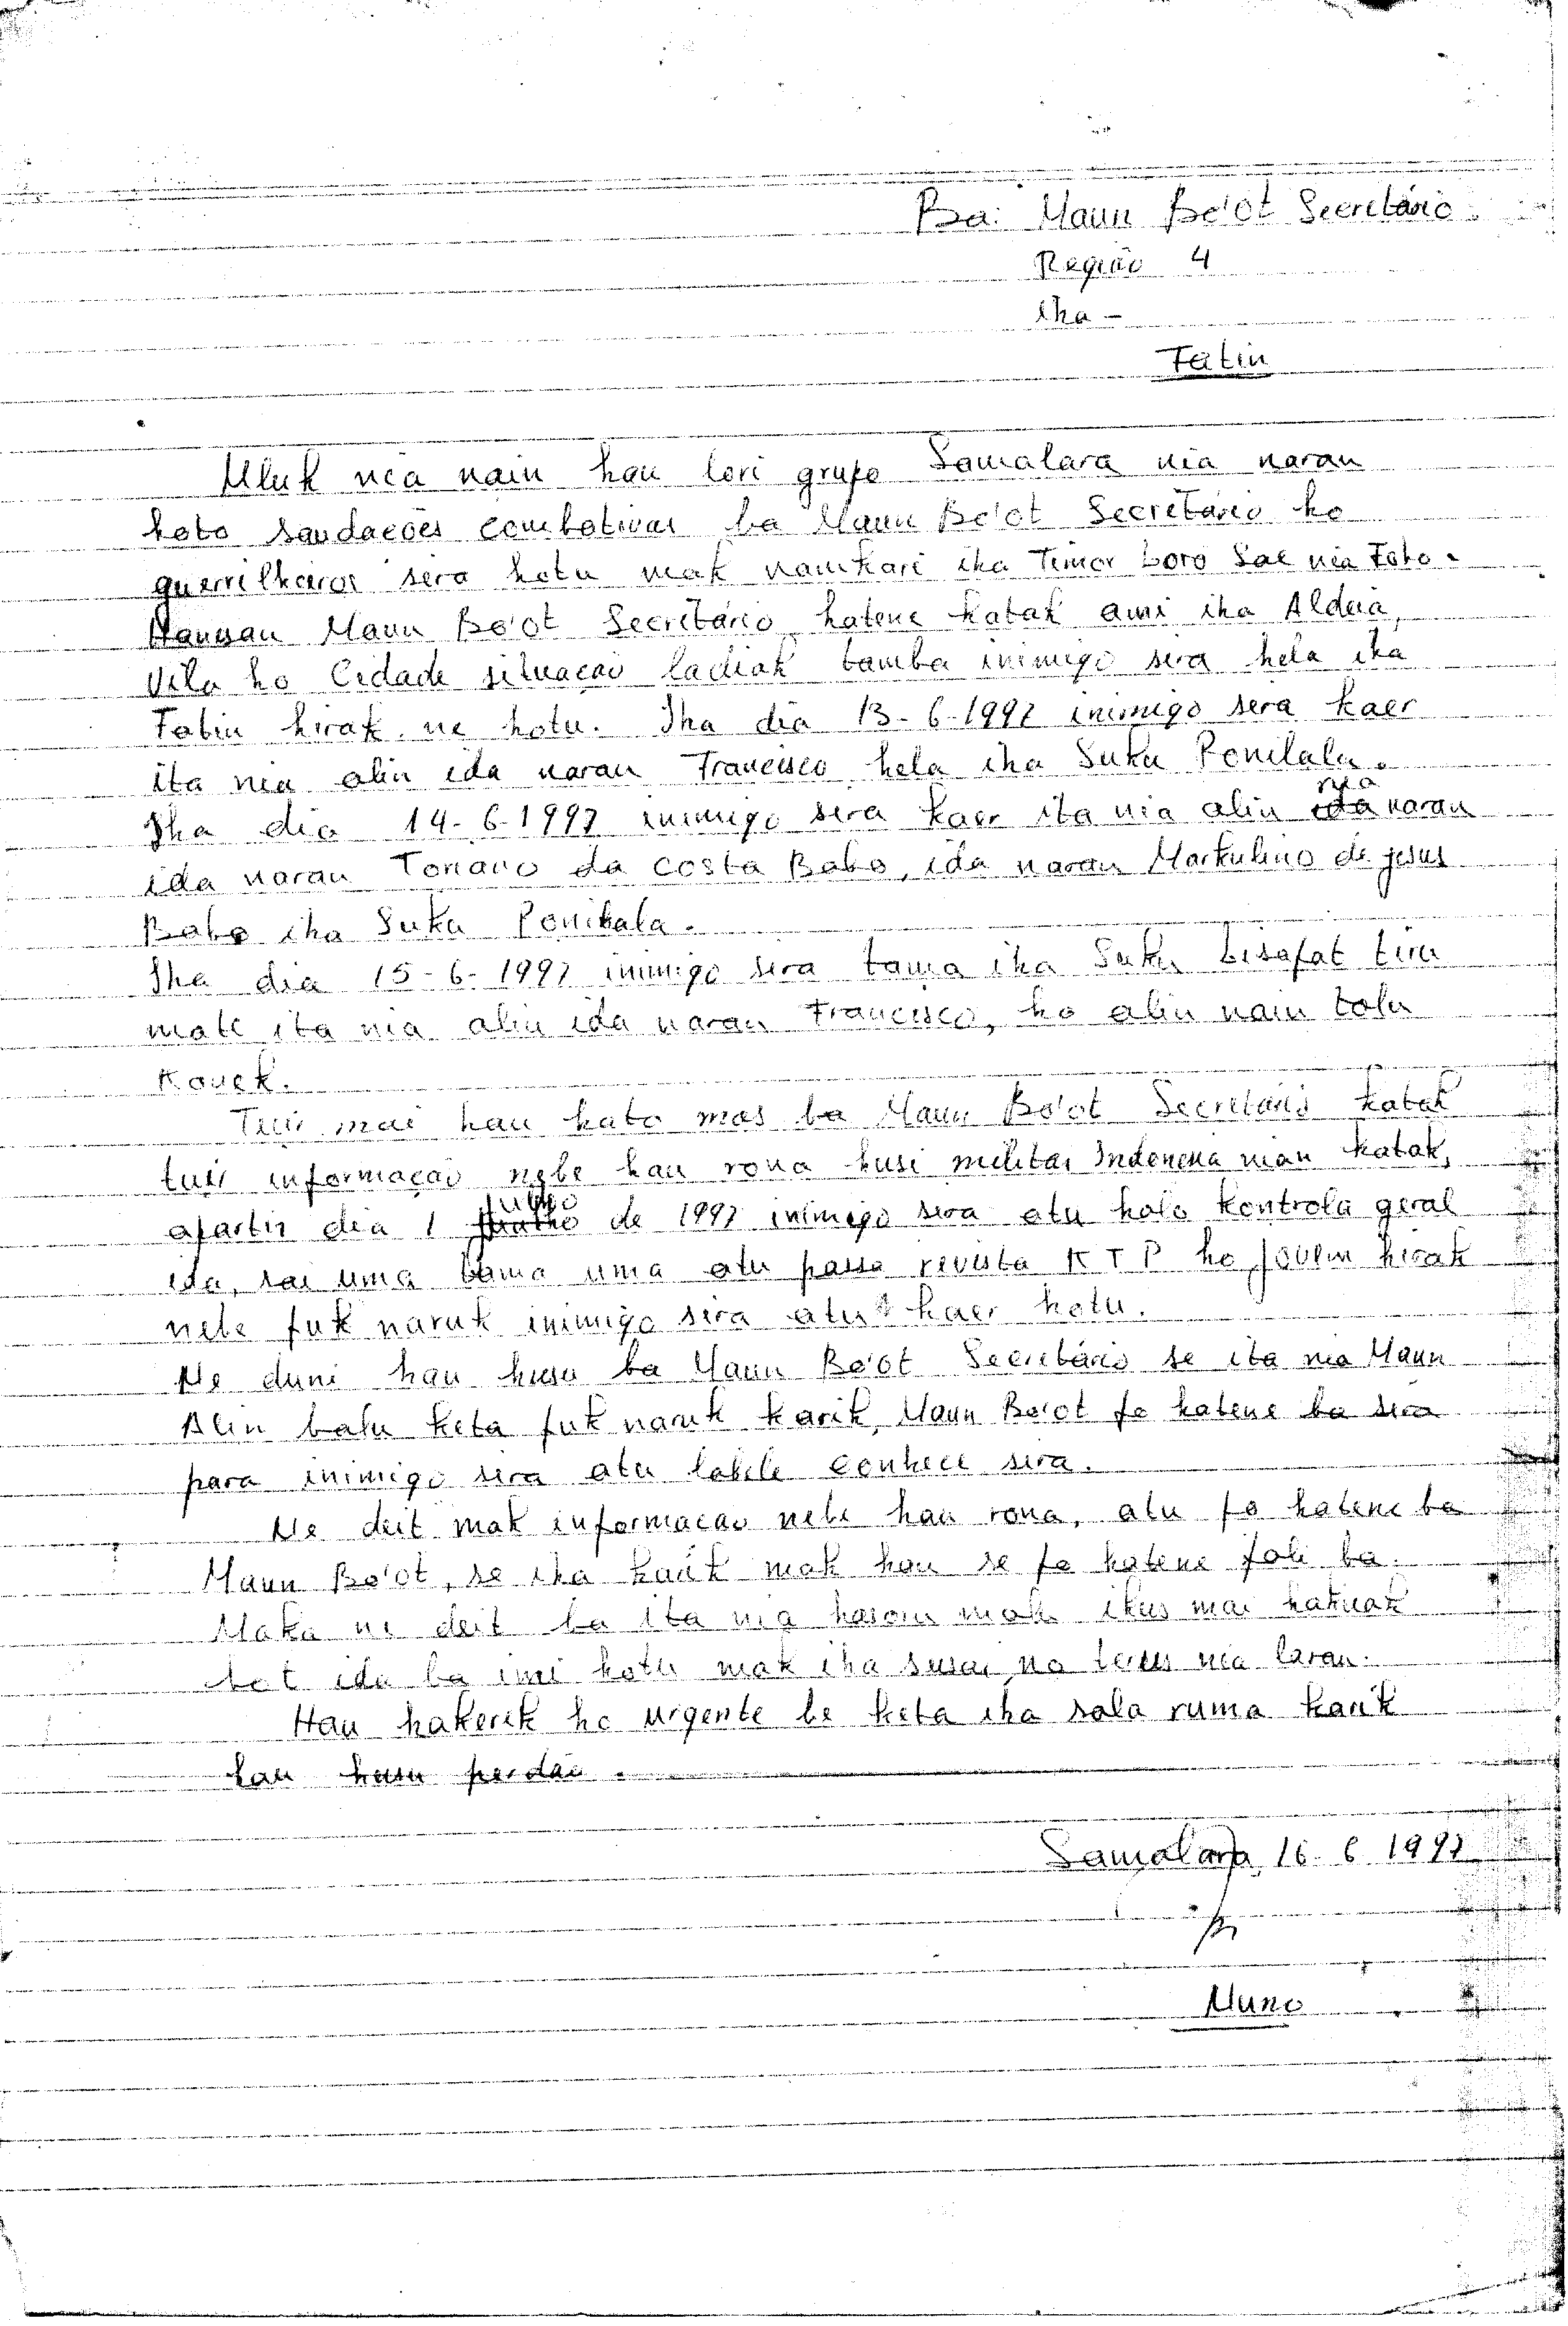 Ba: Maun Bo'ot Secretário
Região 4
iha -
Fatin
Uluk nia nain hau lori grupo Samalara nia naran
hato saudacões combativas ba Maun Bo'ot Secretário ho
guerrilheiros sera hotu mak namkari iha Timor Loro Sae nia Foho.
Maun Bo'ot Secretário hatene katak ami iha Aldeia,
Vila ho Cidade situacao ladiak tamba inimigo sira hela iha
Fatin hirak ne hotu. Iha dia 13-6-1997 inimigo sera kaer
ita nia alin ida naran Francisco hela iha Suku Ponilala.
Iha dia 14-6-1997 inimigo sera kaer ita nia alin nia naran
ida naran Tonano da Costa Babo, ida naran Markulino de jesus
Babo iha Suku Ponilala.
Iha dia 15-6-1997 inimigo sira tama iha Suku Lisapat tiru
mate ita nia alin ida naran Francisco, ho alin nain tolu
Kanek.
Tuir mai hau hato mos ba Maun Bo'ot Secretário katak
tuir informacao nebe hau rona husi militar Indonesia nian katak,
apartir dia 1 Julho de 1997 inimigo sira atu halo kontrola geral
ida, sai uma tama uma atu passa revista KTP ho jovem hirak
nebe fuk naruk inimigo sira atu kaer hotu.
Ne duni hau husu ba Maun Bo'ot Secretário se ita nia Maun
Alin balu keta fuk naruk karik, Maun Bo'ot fo hatene ba sira
para inimigo sira atu labele conhece sira.
Ne deit mak informacao nebe hau rona, atu fo hatene ba
Maun Bo'ot, se iha karik mak hau se fo hatene fali ba.
Maka ne deit ba ita nia hasoru malu ikus mai hakuak
bot ida ba imi hotu mak iha susar no terus nia laran.
Hau hakerek ho urgente be keta iha sala ruma karik
hau husu perdão.
Samalara, 16-6-1997
Nuno